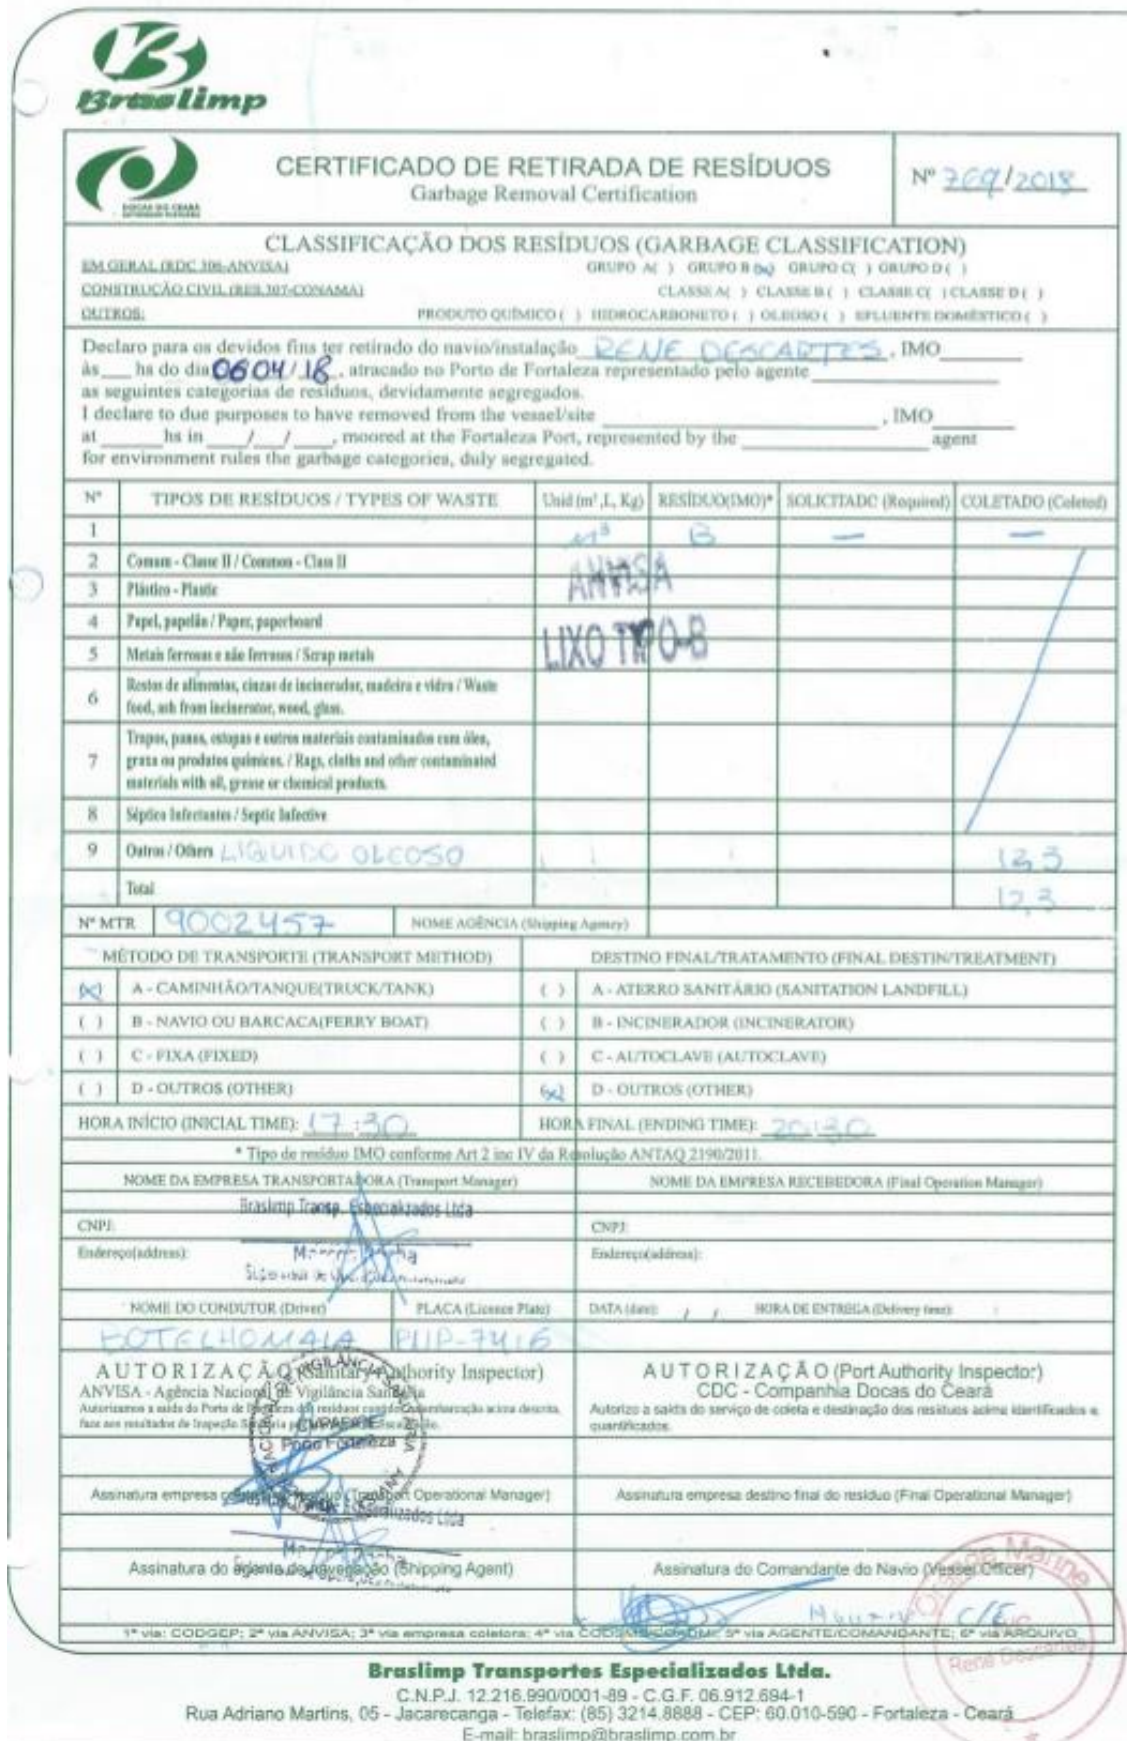 Braslimp
DOCAS DO CEARÁ
CERTIFICADO DE RETIRADA DE RESÍDUOS
Garbage Removal Certification
Nº 769/2018
CLASSIFICAÇÃO DOS RESÍDUOS (GARBAGE CLASSIFICATION)
EM GERAL (RDC 306-ANVISA) GRUPO A( ) GRUPO B(x) GRUPO C( ) GRUPO D( )
CONSTRUÇÃO CIVIL (RES.307-CONAMA) CLASSE A( ) CLASSE B( ) CLASSE C( ) CLASSE D( )
OUTROS: PRODUTO QUÍMICO ( ) HIDROCARBONETO ( ) OLEOSO ( ) EFLUENTE DOMÉSTICO ( )
Declaro para os devidos fins ter retirado do navio/instalação RENE DESCARTES, IMO
às ___ hs do dia 06 04/18, atracado no Porto de Fortaleza representado pelo agente
as seguintes categorias de resíduos, devidamente segregados.
I declare to due purposes to have removed from the vessel/site ___, IMO
at ___ hs in __/__/__, moored at the Fortaleza Port, represented by the ___ agent
for environment rules the garbage categories, duly segregated.
Nº TIPOS DE RESÍDUOS / TYPES OF WASTE Unid (m³,L, Kg) RESÍDUO(IMO)* SOLICITADC (Required) COLETADO (Coleted)
1 M³ B — —
2 Comum - Classe II / Common - Class II
ANVISA
3 Plástico - Plastic
4 Papel, papelão / Paper, paperboard
LIXO TIPO-B
5 Metais ferrosos e não ferrosos / Scrap metals
6 Restos de alimentos, cinzas de incinerador, madeira e vidro / Waste
food, ash from incinerator, wood, glass.
7 Trapos, panos, estopas e outros materiais contaminados com óleo,
graxa ou produtos químicos. / Rags, cloths and other contaminated
materials with oil, grease or chemical products.
8 Séptico Infectantes / Septic Infective
9 Outros / Others LIQUIDO OLEOSO 12,3
Total 12,3
Nº MTR 9002457 NOME AGÊNCIA (Shipping Agency)
MÉTODO DE TRANSPORTE (TRANSPORT METHOD) DESTINO FINAL/TRATAMENTO (FINAL DESTIN/TREATMENT)
(x) A - CAMINHÃO/TANQUE(TRUCK/TANK) ( ) A - ATERRO SANITÁRIO (SANITATION LANDFILL)
( ) B - NAVIO OU BARCACA(FERRY BOAT) ( ) B - INCINERADOR (INCINERATOR)
( ) C - FIXA (FIXED) ( ) C - AUTOCLAVE (AUTOCLAVE)
( ) D - OUTROS (OTHER) (x) D - OUTROS (OTHER)
HORA INÍCIO (INICIAL TIME): 17:30 HORA FINAL (ENDING TIME): 20:30
* Tipo de resíduo IMO conforme Art 2 inc IV da Resolução ANTAQ 2190/2011.
NOME DA EMPRESA TRANSPORTADORA (Transport Manager) NOME DA EMPRESA RECEBEDORA (Final Operation Manager)
Braslimp Transp. Especializados Ltda
CNPJ: CNPJ:
Endereço(address): Endereço(address):
NOME DO CONDUTOR (Driver) PLACA (Licence Plate) DATA (date): / / HORA DE ENTREGA (Delivery time): :
BOTELHO MAIA
AUTORIZAÇÃO (Sanitary Authority Inspector) AUTORIZAÇÃO (Port Authority Inspector)
ANVISA - Agência Nacional de Vigilância Sanitária CDC - Companhia Docas do Ceará
Autorizo a saída do serviço de coleta e destinação dos resíduos acima identificados e
quantificados.
Porto Fortaleza
Assinatura empresa (Transport Operational Manager) Assinatura empresa destino final do resíduo (Final Operational Manager)
Assinatura do agente de navegação (Shipping Agent) Assinatura do Comandante do Navio (Vessel Officer)
Orange Marine
C/E
René Descartes
1ª via: CODGEP; 2ª via ANVISA; 3ª via empresa coletora; 4ª via 5ª via AGENTE/COMANDANTE; 6ª via ARQUIVO
Braslimp Transportes Especializados Ltda.
C.N.P.J. 12.216.990/0001-89 - C.G.F. 06.912.694-1
Rua Adriano Martins, 05 - Jacarecanga - Telefax: (85) 3214.8888 - CEP: 60.010-590 - Fortaleza - Ceará
E-mail: braslimp@braslimp.com.br